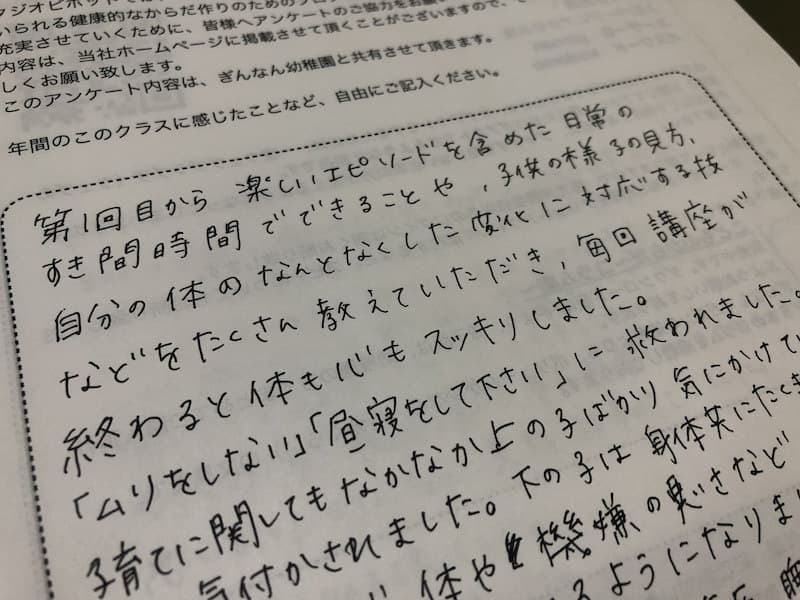 タジオピボット
いられる健康的なからだ作りのためのプログ
充実させていくために、皆様へアンケートのご協力をお願い
内容は、当社ホームページに掲載させて頂くことがございますので、
しくお願い致します。
このアンケート内容は、ぎんなん幼稚園と共有させて頂きます。
年間のこのクラスに感じたことなど、自由にご記入ください。
第1回目から 楽しいエピソードを含めた 日常の
すき間時間 でできることや、子供の様子の見方、
自分の体の なんとなくした 変化に 対応する技
などをたくさん 教えていただき、毎回 講座が
終わると 体も心も スッキリしました。
「ムリをしない」「昼寝をして下さい」に 救われました。
子育てに関しても なかなか上の子ばかり 気にかけてい
気付かされました。下の子は 身体共にたくま
体や 機嫌の悪さなど
るようになりまし